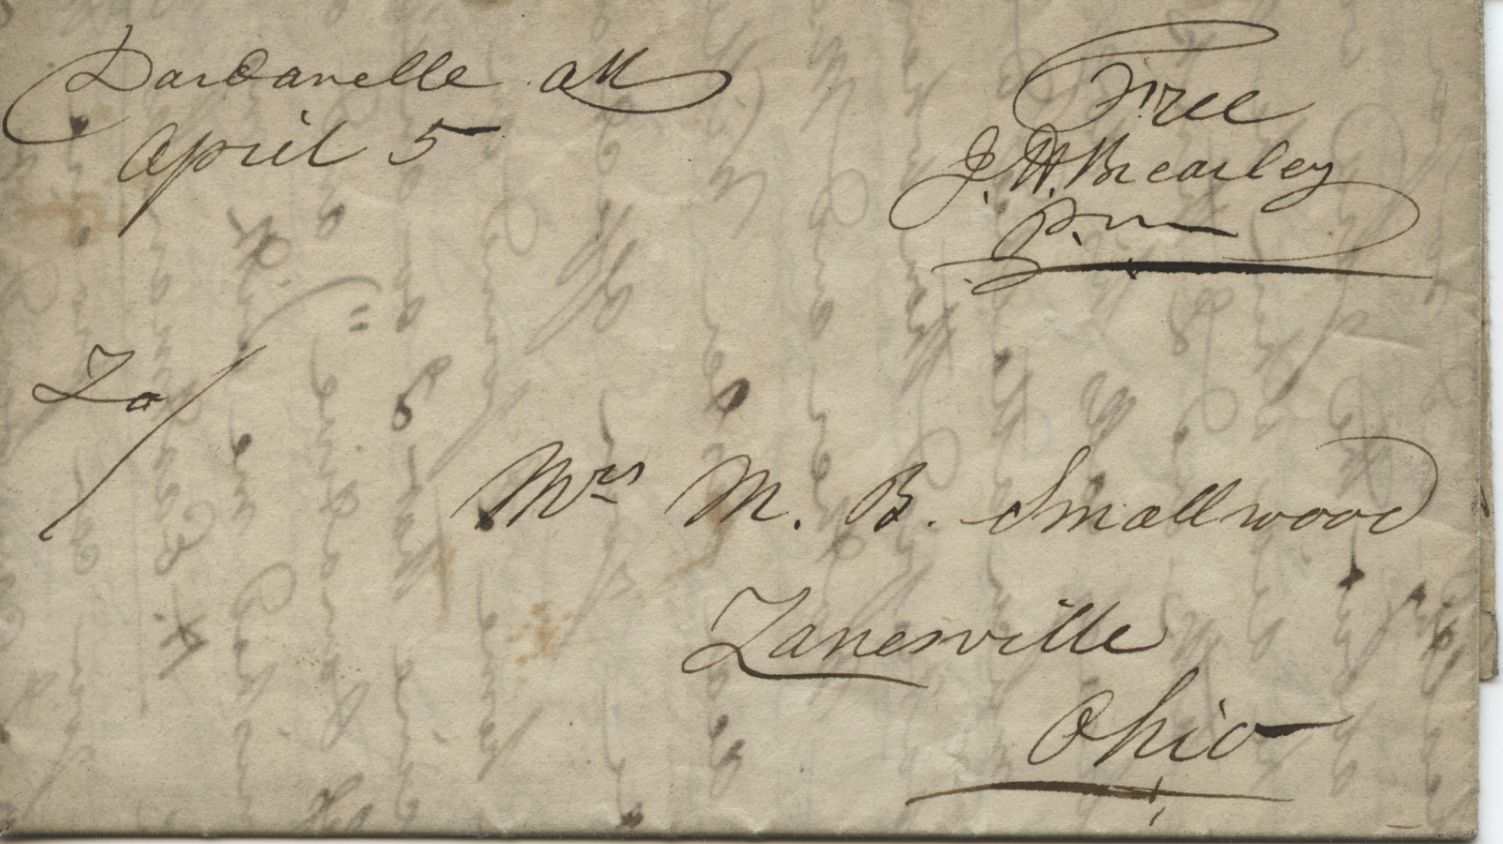 Dardanelle AK
April 5
Free
J. H. Brearley
P. m
To/
Mrs M. B. Smallwood
Zanesville
Ohio